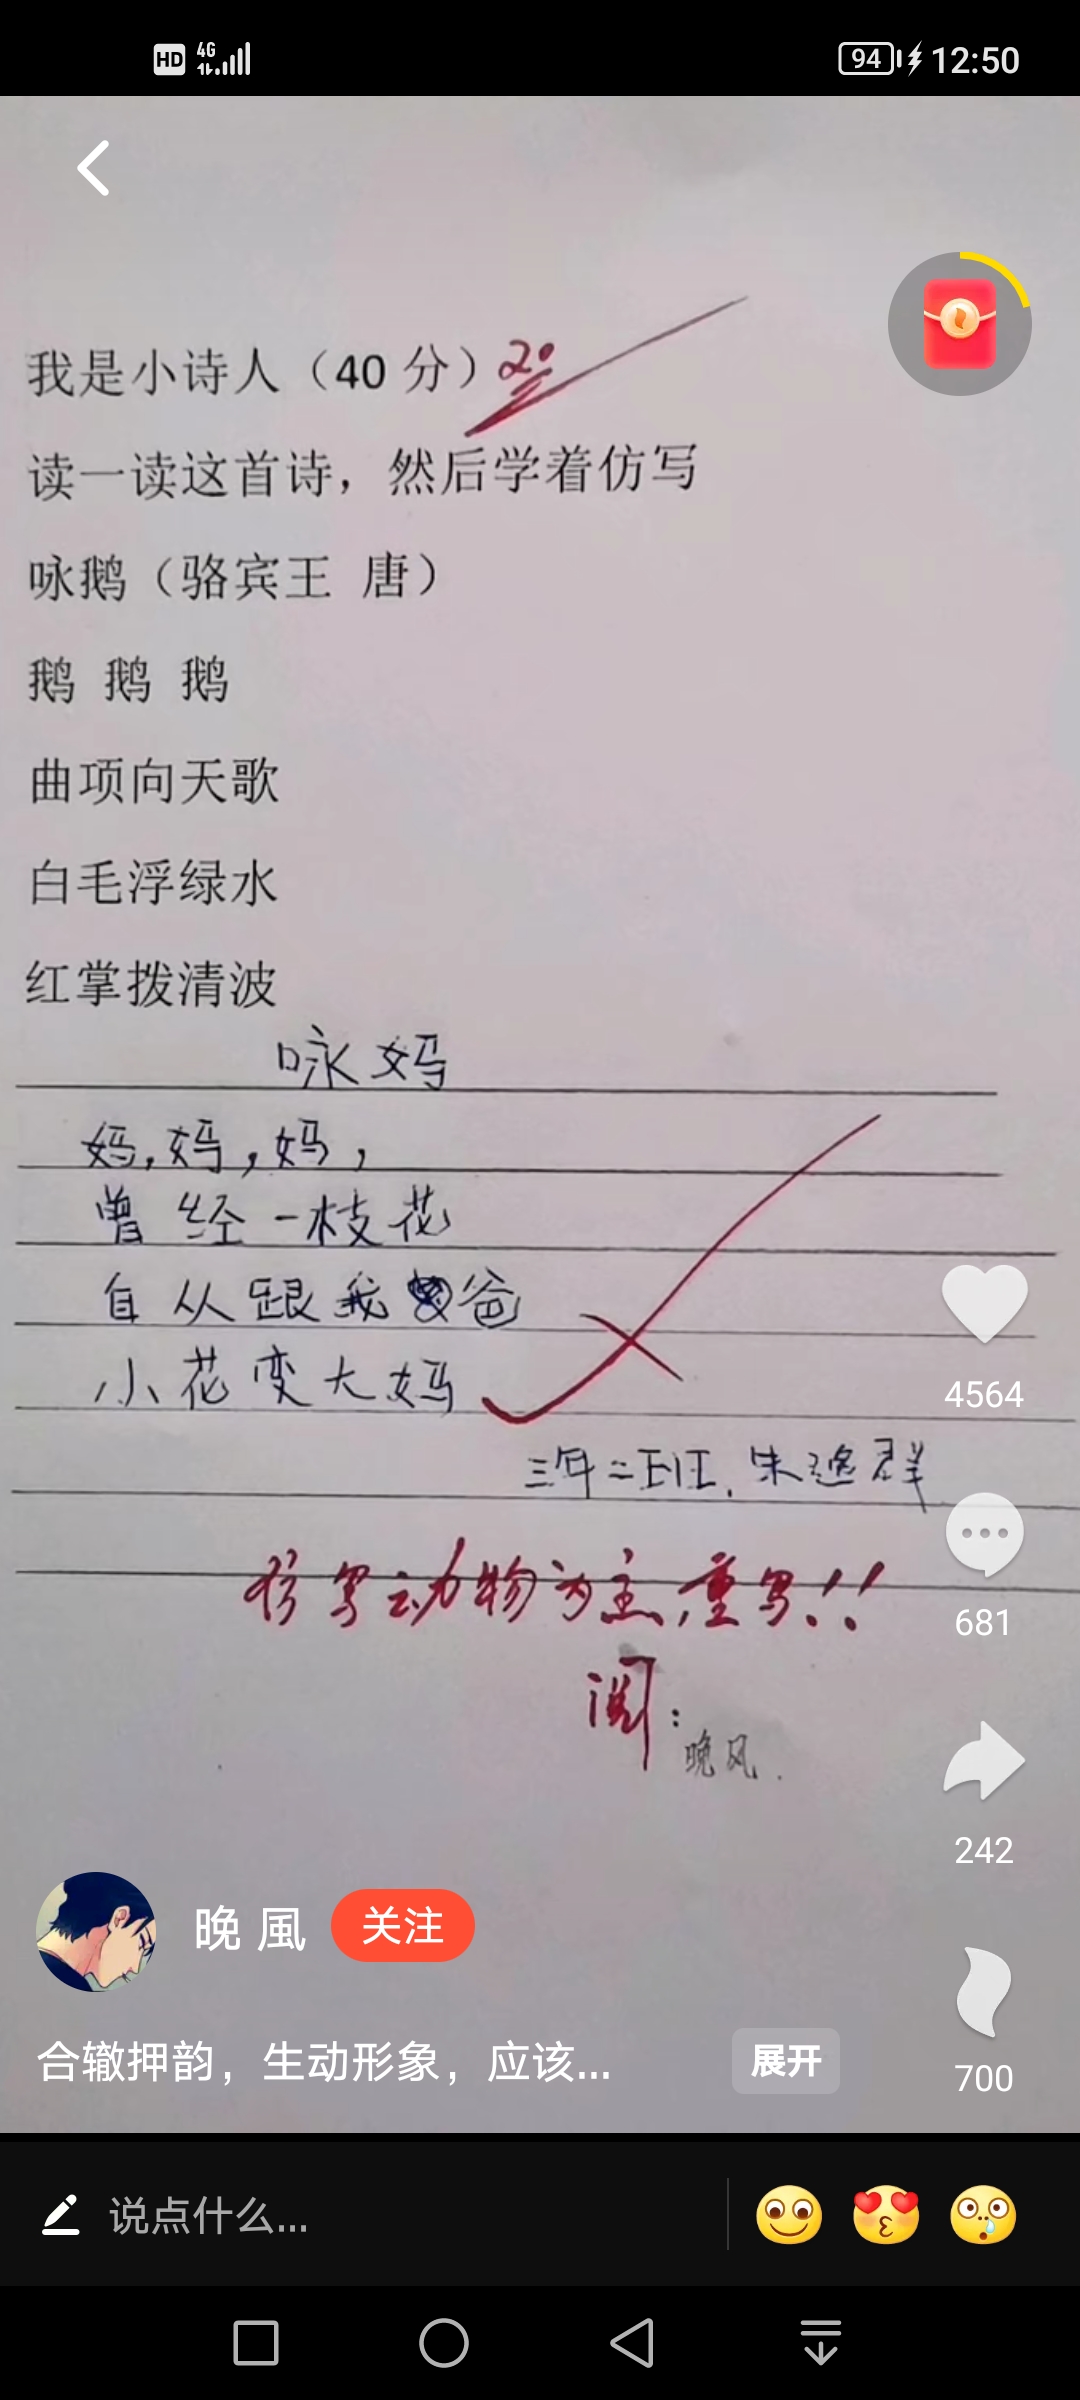 HD 4G 94 12:50
我是小诗人（40 分）20
读一读这首诗，然后学着仿写
咏鹅（骆宾王 唐）
鹅 鹅 鹅
曲项向天歌
白毛浮绿水
红掌拨清波
咏妈
妈，妈，妈，
曾经一枝花
自从跟我爸
小花变大妈
4564
三年二班，朱逸群
681
仿写动物为主，重写！！
阅：
晚风.
242
晚 風 关注
合辙押韵，生动形象，应该... 展开
700
说点什么...